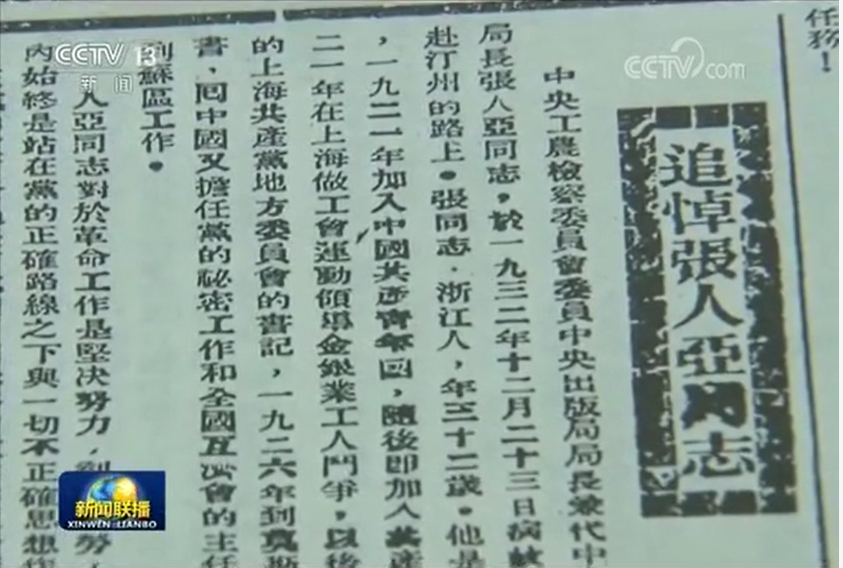 任務！
追悼張人亞同志
中央工農檢察委員會委員中央出版局局長兼代中
局長張人亞同志，於一九三二年十二月二十三日病故
赴汀州的路上。張同志．浙江人，年三十二歲。他是
，一九二一年加入中國共產青年團，隨後即加入共產
二一年在上海做工會運動領導金銀業工人鬥爭，以後
的上海共產黨地方委員會的書記，一九二六年到莫斯
書，囘中國又擔任黨的祕密工作和全國互濟會的主任
到蘇區工作。
人亞同志對於革命工作是堅決努力，刻勞，
內始終是站在黨的正確路線之下與一切不正確思想作
CCTV 13
新闻
CCTV.com
新闻联播
XINWEN LIANBO